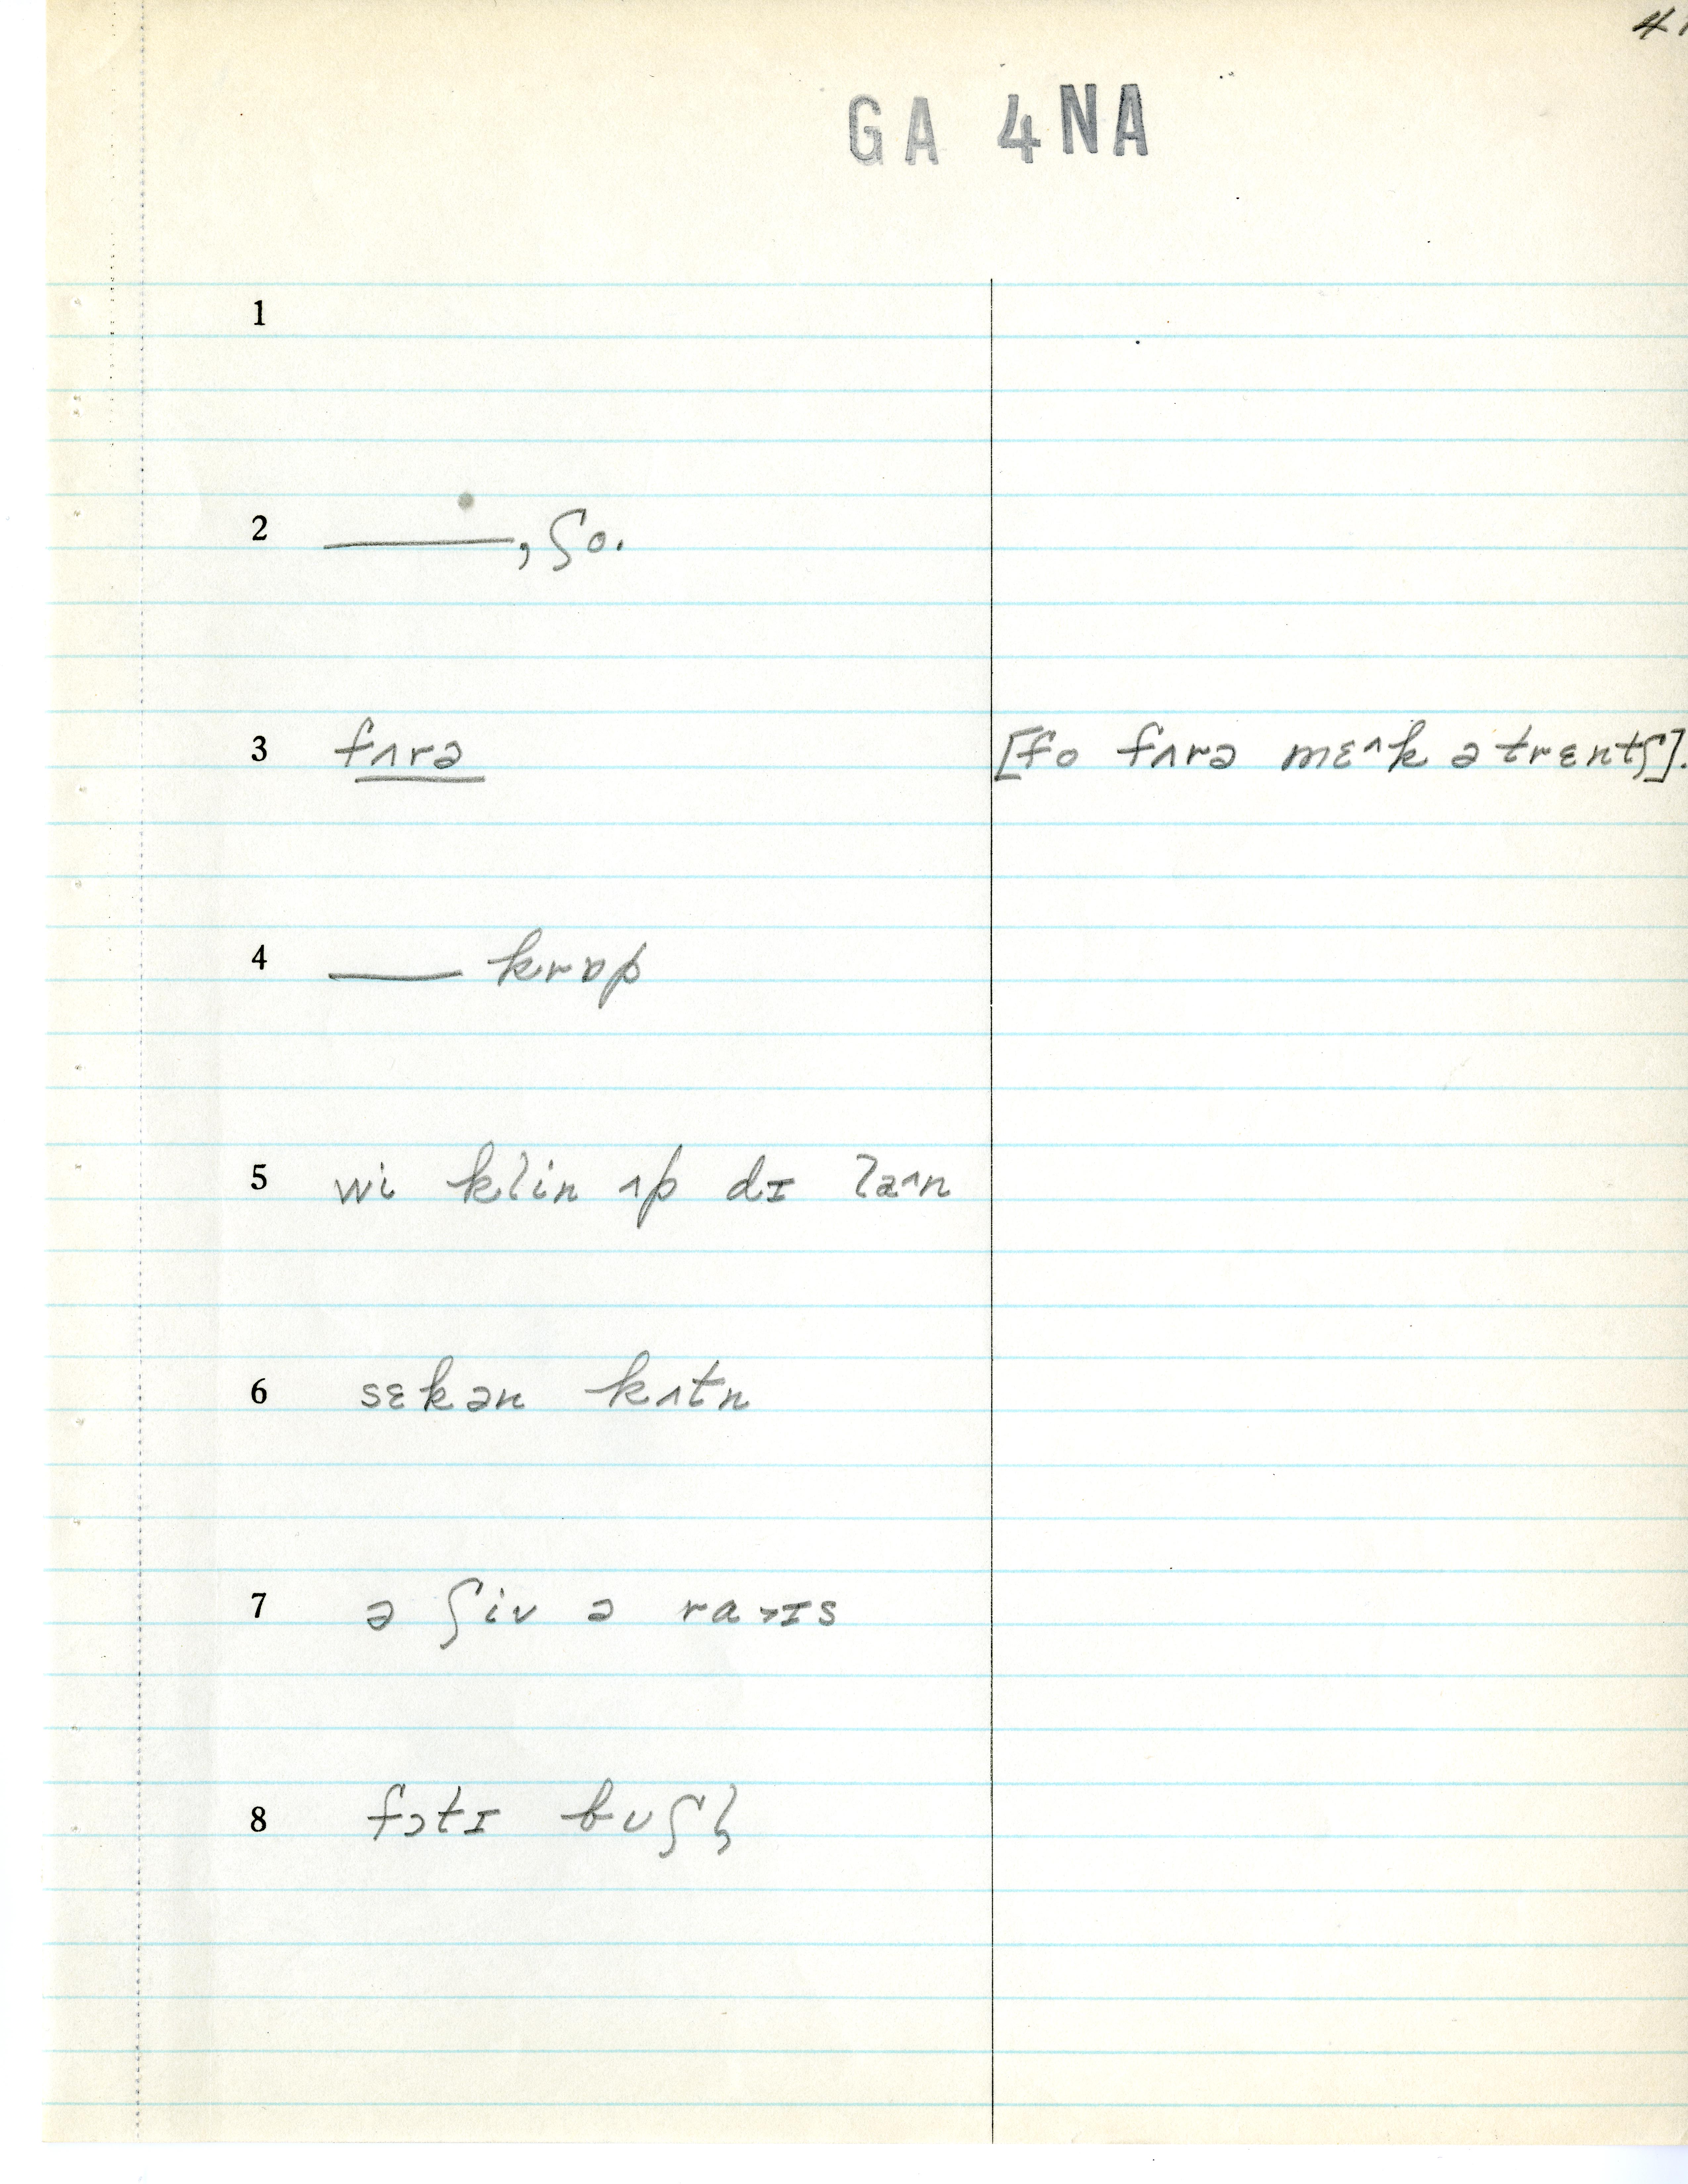 GA 4NA
1
2 ———, ʃo.
3 fʌrə [fo fʌrə mɛ^k ə trɛntʃ].
4 ——— krɒp
5 wi klin ʌp dɪ la^n
6 sɛkən kʌtn
7 ə ʃiv ə ra˃ɪs
8 fɔtɪ buʃl̩